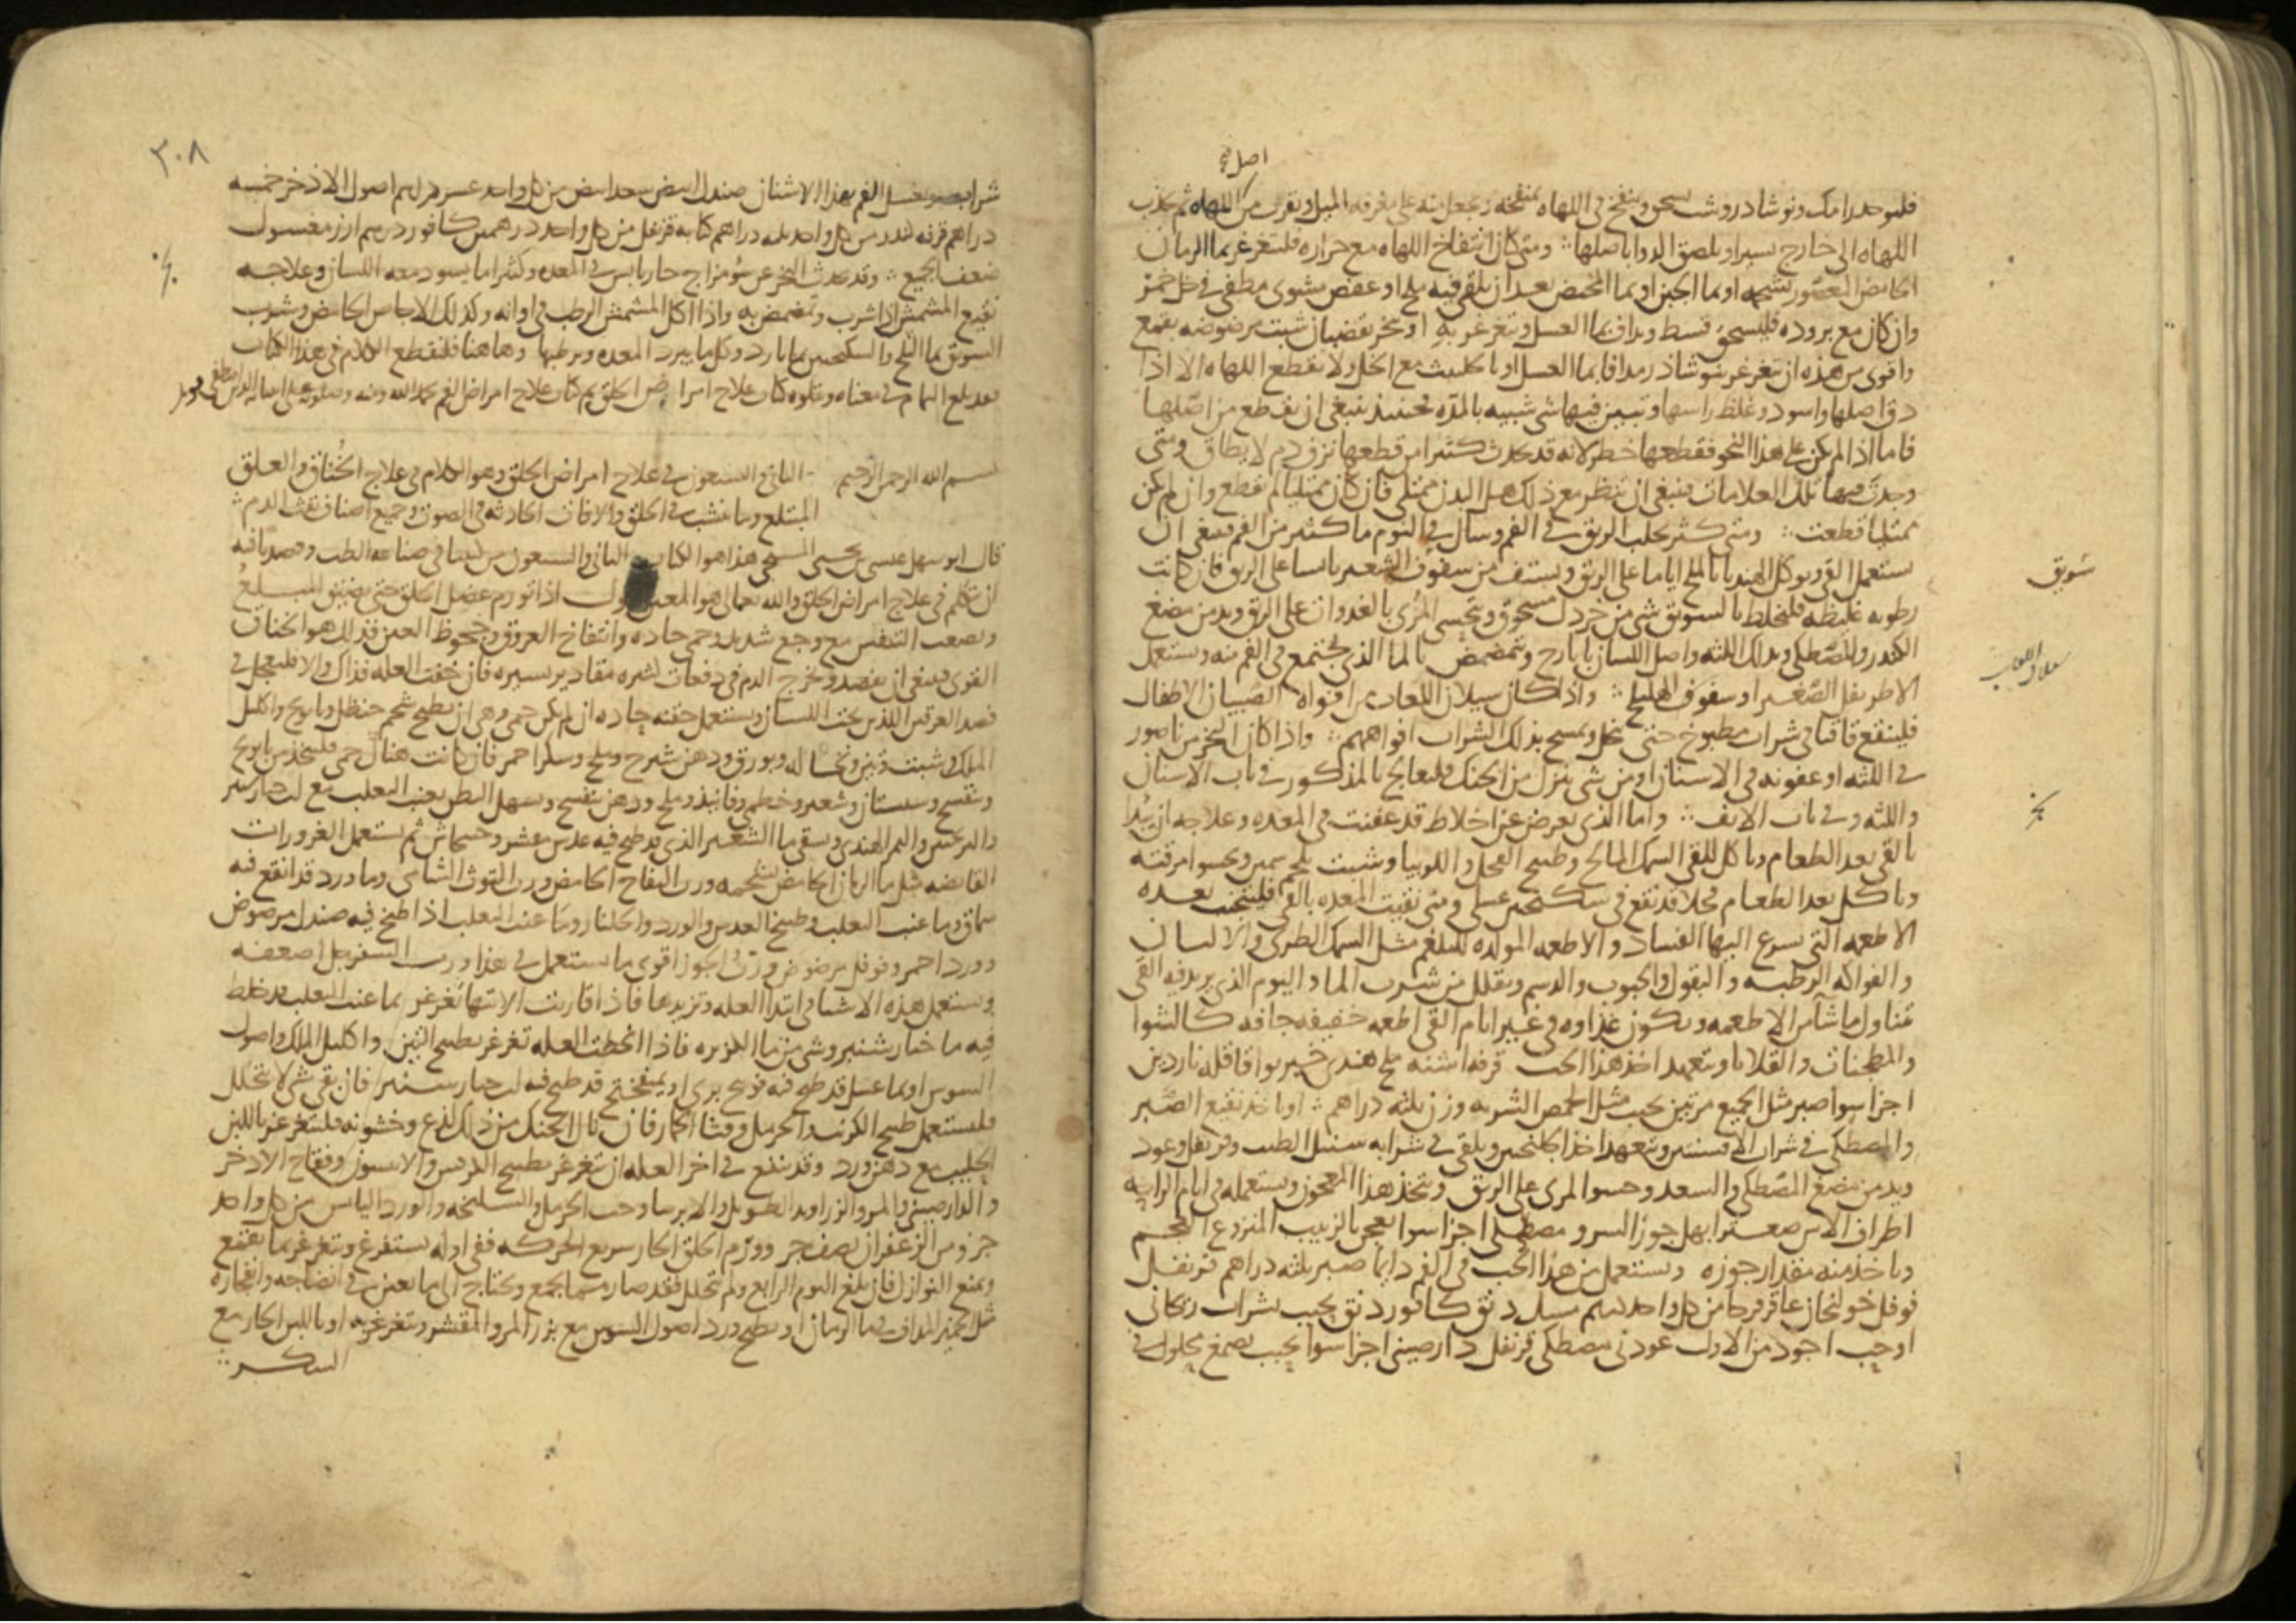 اصل صح
فليوخذ رامك ونوشادر وشب يسحق وينفخ في اللهاه بمنفخه ويجعل منه على مغرفه الميل ويقرب من اللهاه ثم يجذب
اللهاه الى خارج يسيرا ويلصق الدوا باصلها ومتى كان انتفاخ اللهاه مع حراره فليتغرغر بما الرمان
الحامض المعصور بشحمه او بما الجبن او بما المخيض بعد ان يلقى فيه ملح او عفص مشوى مطفى في خل خمر
وان كان مع بروده فليسحق قسط ويداف بما العسل ويتغرغر به او بخر بقضبان شبت مرضوضه بقمع
واقوى من هذه ان يتغرغر بنوشادر مدافا بما العسل او بالحلتيت مع الخل ولا تقطع اللهاه الا اذا
دق اصلها واسود وغلظ راسها وتبين فيها شى شبيه بالمده فحينيذ ينبغي ان تقطع من اصلها
فاما اذا لم يكن على هذا النحو فقطعها خطر لانه قد يحدث كثيرا من قطعها نزف دم لا يطاق ومتى
وجدت فيها تلك العلامات فينبغي ان تنظر مع ذلك هل البدن ممتلى فان كان ممتليا لم تقطع وان لم يكن
ممتليا قطعت ومتى كثر تحلب الريق في الفم وسال في النوم ما كثير من الفم فينبغي ان
يستعمل القى وياكل الهندبا بالملح اياما على الريق ويستف من سفوف الشعير يابسا على الريق فان كانت
رطوبه غليظه فليخلط بالسويق شى من خردل مسحوق ويتحسى المرى بالغدوات على الريق ويدمن مضغ
الكندر والمصطكى ويدلك اللثه واصل اللسان بايارج ويتمضمض بالما الذى يجتمع في الفم منه ويستعمل
الاطريفل الصغير او سفوف الهليلج واذا كان سيلان اللعاب من افواه الصبيان الاطفال
فلينقع قاقيا في شراب مطبوخ حتى ينحل ويمسح بذلك الشراب افواههم واذا كان البخر من ناصور
في اللثه او عفونه في الاسنان او من شى ينزل من الحنك فليعالج بالمذكور في باب الاسنان
واللثه وفي باب الانف واما الذى يعرض عن اخلاط قد عفنت في المعده وعلاجه ان يبدا
بالقى بعد الطعام وياكل للقى السمك المالح وطبيخ الفجل واللوبيا وشبت بلحم سمين ويحسوا مرقته
وياكل بعد الطعام فجلا قد نقع في سكنجبين عسلى ومتى نقيت المعده بالقى فليتجنب بعده
الاطعمه التى يسرع اليها الفساد والاطعمه المولده للبلغم مثل السمك الطرى والالبان
والفواكه الرطبه والبقول والحبوب والدسم ويقلل من شرب الما واليوم الذى يريد فيه القى
يتناول ما شا من الاطعمه ويكون غذاوه في غير ايام القى اطعمه خفيفه جافه كالشوا
والمطجنات والقلايا ويتعهد اخذ هذا الحب قرفه اشنه ملح هندى خير بوا قاقله ناردين
اجزا سوا صبر مثل الجميع مرتين يحبب مثل الحمص الشربه وزن ثلثه دراهم او ياخذ نقيع الصبر
والمصطكى في شراب الافسنتين ويتعهد اخذ الجلنجبين ويلقى في شرابه سنبل الطيب وقرنفل وعود
ويدمن مضغ المصطكى والسعد وحسوا المرى على الريق ويتخذ هذا المعجون ويستعمله في ايام الراحه
اطراف الاس صعتر ابهل جوز السرو مصطكى اجزا سوا يعجن بالزبيب المنزوع العجم
وياخذ منه مقدار جوزه ويستعمل من هذا الحب في الفم دايما صبر ثلثه دراهم قرنفل
فوفل خولنجان عاقرقرحا من كل واحد درهم مسك دنق كافور دنق يحبب بشراب ريحانى
او حب اجود من الاول عود نى مصطكى قرنفل دارصينى اجزا سوا يحبب بصمغ محلول في
سويق
سيلان اللعاب
بخر
٣٠٨
شراب ويغسل الفم بهذا الاشنان صندل ابيض سعد ابيض من كل واحد عشره دراهم اصول الاذخر خمسه
دراهم قرفه كندر من كل واحد ثلثه دراهم كبابه قرنفل من كل واحد درهمين كافور درهم ارز مغسول
ضعف الجميع وقد يحدث البخر عن سو مزاج حار يابس في المعده وكثيرا ما يسود معه اللسان وعلاجه
نقيع المشمش اذا شرب وتمضمض به واذا اكل المشمش الرطب في اوانه وكذلك الاجاص الحامض وشرب
السويق بما الثلج والسكنجبين بما بارد وكل ما يبرد المعده ويرطبها وها هنا فلنقطع الكلام في هذا الكتاب
بعد بلوغ التمام في معناه ويتلوه كتاب علاج امراض الحلق تم كتاب علاج امراض الفم بحمد الله ومنه وصلوته على
بسم الله الرحمن الرحيم الثانى والسبعون في علاج امراض الحلق وهو الكلام في علاج الخناق والعلق
المبتلع وما ينشب في الحلق والافات الحادثه في الصوت وجميع اصناف نفث الدم
قال ابو سهل عيسى بن يحيى المسيحى هذا هو الكتاب الثانى والسبعون من كتبنا في صناعه الطب وقصدنا فيه
ان نتكلم في علاج امراض الحلق والله تعالى هو المعين اذا تورم عضل الحلق حتى يضيق المبلع
ويصعب التنفس مع وجع شديد وحمى حاده وانتفاخ العروق وجحوظ العين فذلك هو الخناق
القوى فينبغي ان يفصد ويخرج الدم في دفعات كثيره مقادير يسيره فان خفت العله فذاك والا فليعجل في
فصد العرقين اللذين تحت اللسان ويستعمل حقنه حاده ان لم يكن حمى وهى ان يطبخ شحم حنظل وبابونج واكليل
الملك وشبت وتين ونخاله وبورق ودهن شيرج وملح وسكر احمر فان كانت هناك حمى فليتخذ من بابونج
وبنفسج وسبستان وشعير وخطمى وفانيذ وملح ودهن بنفسج ويسهل البطن بعنب الثعلب مع لب خيارشنبر
والترنجبين والتمر الهندى ويسقى ما الشعير الذى قد طبخ فيه عدس مقشر وخشخاش ثم يستعمل الغرورات
القابضه مثل ما الرمان الحامض بشحمه ورب التفاح الحامض ورب التوث الشامى وما ورد قد انقع فيه
سماق وما عنب الثعلب وطبيخ العدس والورد والجلنار وما عنب الثعلب اذا طبخ فيه صندل مرضوض
وورد احمر وفوفل مرضوض ورب الجوز اقوى ما يستعمل في هذا ورب السفرجل اضعفه
ويستعمل هذه الاشيا في ابتدا العله وتزيدها فاذا قاربت الانتها تغرغر بما عنب الثعلب قد خلط
فيه ما خيارشنبر وشى من ما الكزبره فاذا انحطت العله تغرغر بطبيخ التين واكليل الملك واصول
السوس او بما عسل قد طبخ فيه فوتنج برى او بميفختج قد طبخ فيه لب خيارشنبر فان بقى شى لا يتحلل
فليستعمل طبيخ الكرنب والحرمل وقثا الحمار فان نال الحنك من ذلك لذع وخشونه فليتغرغر باللبن
الحليب مع دهن ورد وقد ينفع في اخر العله ان يتغرغر بطبيخ الترمس والانيسون وفقاح الاذخر
والدارصينى والمر والزراوند الطويل والايرسا وحب الحرمل والسليخه والورد اليابس من كل واحد
جزو من الزعفران نصف جز وورم الحلق الحار سريع الحركه ففى اوله يستفرغ ويتغرغر بما يقمع
ويمنع النوازل فان بلغ اليوم الرابع ولم يتحلل فقد صار مما يجمع ويحتاج الى ما يعين في انضاجه وانفجاره
مثل الخمير المداف في ما الرمان او بطبيخ ورد اصول السوس مع بزر المر والمقشر ويتغرغر به او باللبن الحار مع
السكر